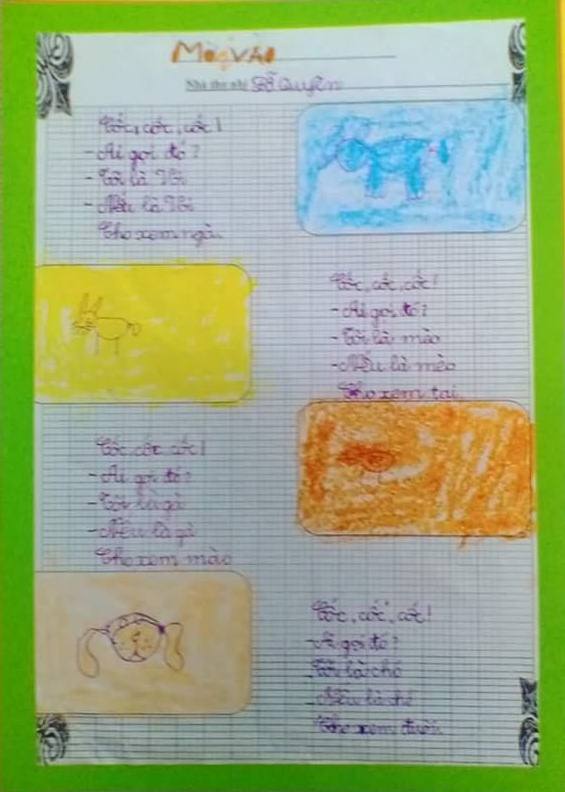 Mời vào
Nhà thơ nhí Đỗ Quyên
Cốc, cốc, cốc!
- Ai gọi đó?
- Tôi là Voi
- Nếu là Voi
Cho xem ngà.
Cốc, cốc, cốc!
- Ai gọi đó?
- Tôi là mèo
- Nếu là mèo
Cho xem tai.
Cốc cốc cốc!
- Ai gọi đó?
- Tôi là gà
- Nếu là gà
Cho xem mào
Cốc, cốc, cốc!
- Ai gọi đó?
- Tôi là chó
- Nếu là chó
Cho xem đuôi.